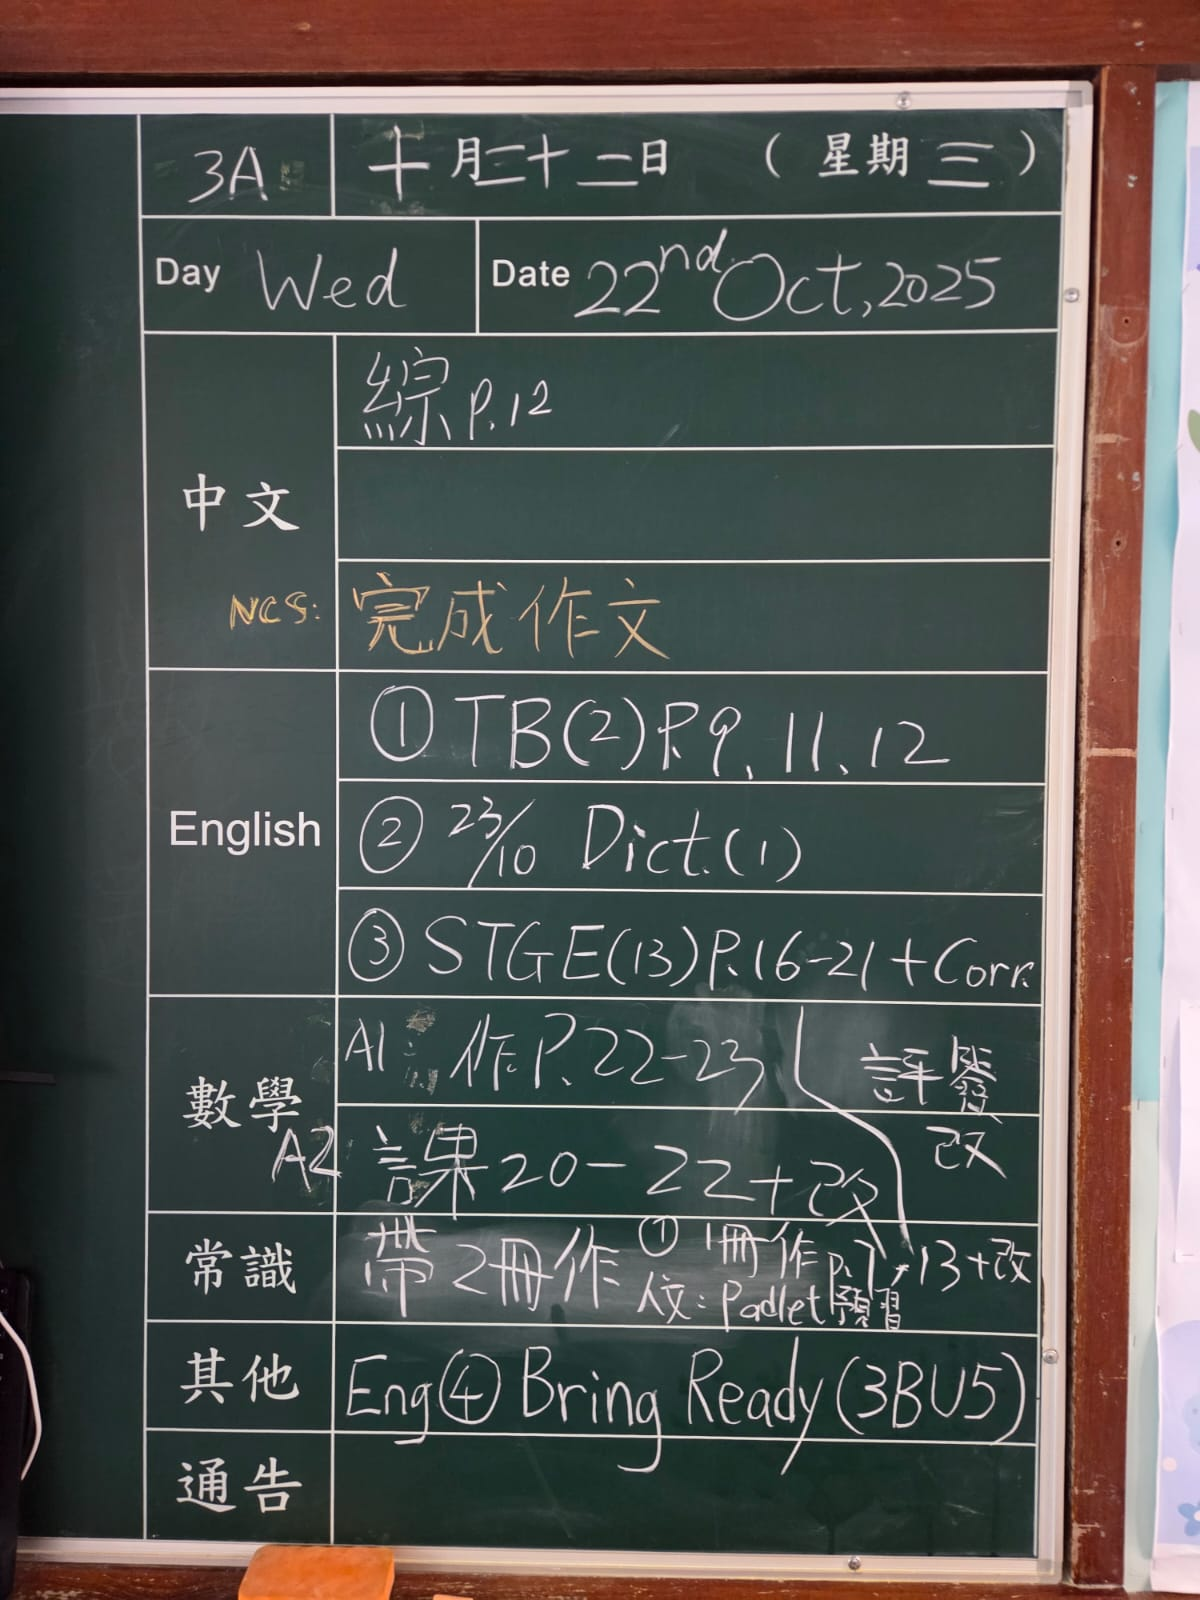 3A 十月二十二日 （星期三）
Day Wed Date 22nd Oct, 2025
中文 綜 P.12
NCS: 完成作文
English ① TB(2) P.9, 11, 12
② 23/10 Dict.(1)
③ STGE(13) P.16-21 + Corr.
數學 A1: 作 P.22-23 評
改
A2 課 20-22+改
常識 帶2冊作 ① 1冊作 P.7, 13+改
Padlet 預習
其他 Eng④ Bring Ready (3BU5)
通告